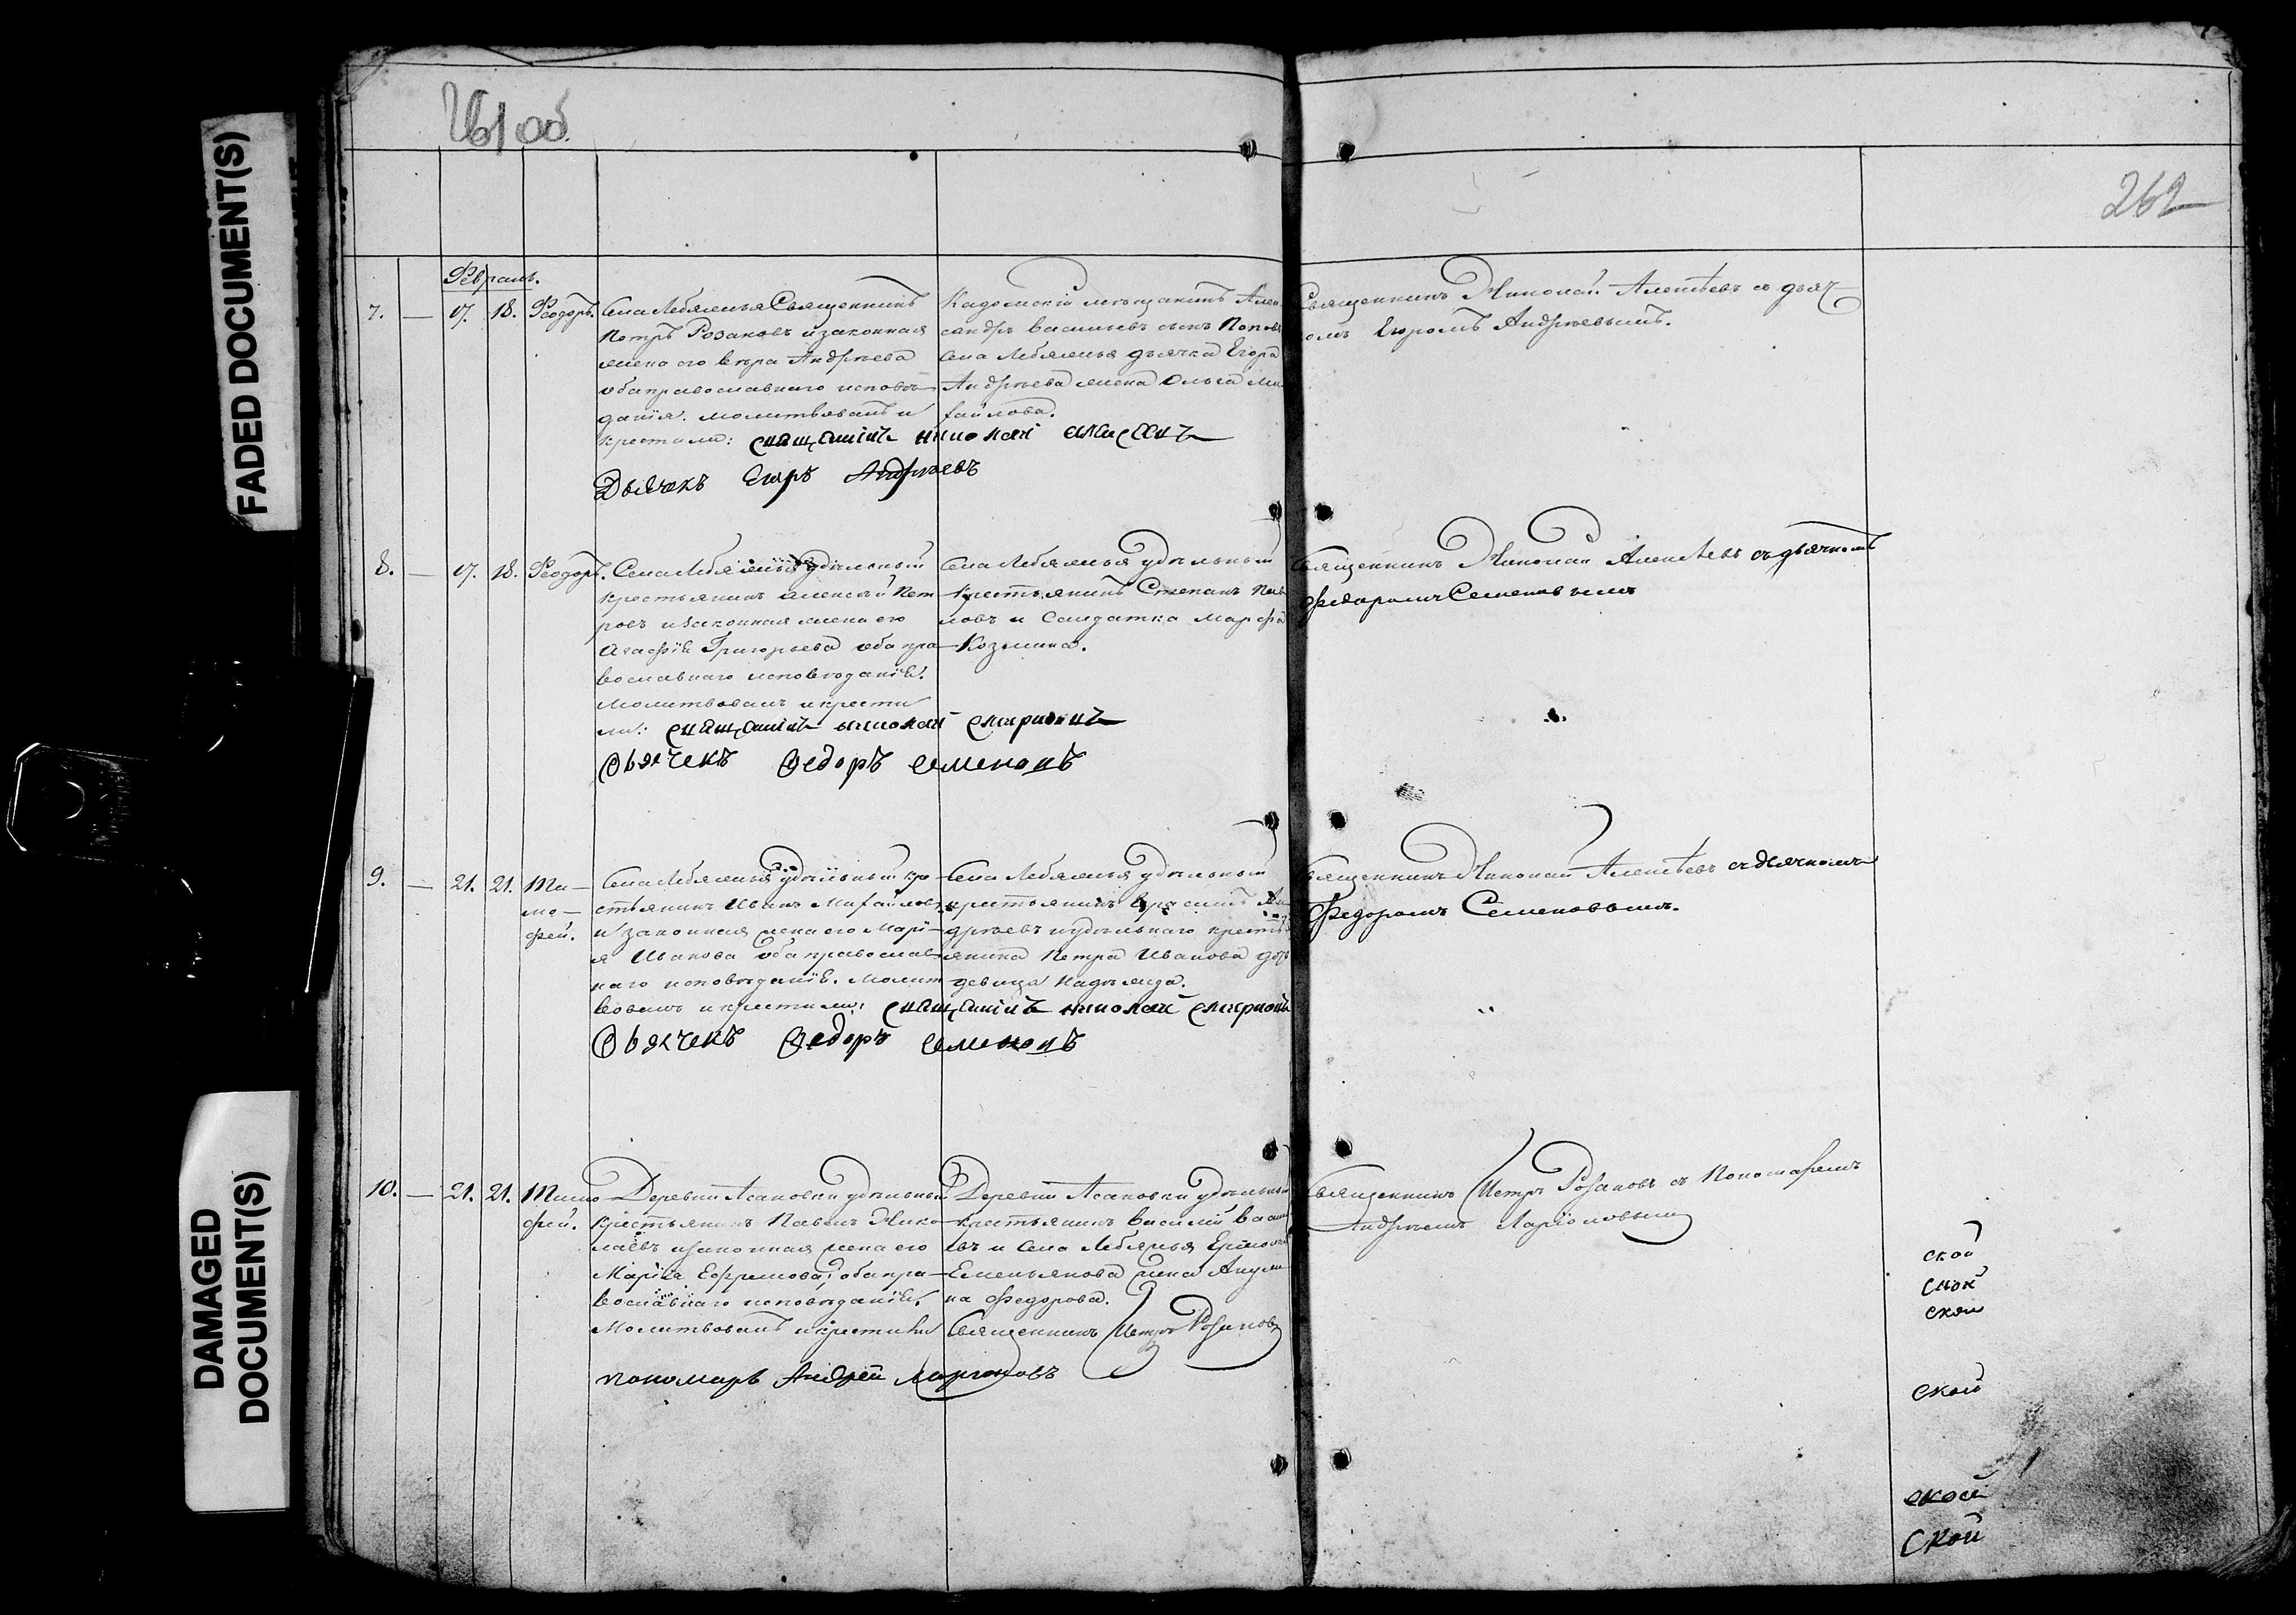 FADED DOCUMENT(S)
DAMAGED DOCUMENT(S)
261 об.
262
Февраль.
7. — 17. 18. Феодоръ.
Села Лебяжья Священникъ
Петръ Розановъ и законная
жена его Вѣра Андрѣева
оба православнаго исповѣ-
данія. молитвовалъ и
крестили: священникъ николай
Дьячекъ Егоръ Андрѣевъ
Кадомскій мѣщанинъ Алек
сандръ Васильевъ сынъ Поповъ
Села Лебяжья дьячка Егора
Андрѣева жена Ольга Ми
хайлова.
Священникъ Николай Алексѣевъ съ дьяч-
омъ Егоромъ Андрѣевымъ.
8. — 17. 18. Феодоръ.
Села Лебяжья удѣльный
крестьянинъ Алексѣй Пет
ровъ и законная жена его
Агафія Григорьева оба пра-
вославнаго исповѣданія.
Молитвовалъ и крести
ли: священникъ николай смирновъ
Дьячекъ Федоръ Семеновъ
Села Лебяжья удѣльный
крестьянинъ Степанъ Пав
ловъ и Солдатка Марфа
Козьмина.
Священникъ Николай Алексѣевъ съ дьячкомъ
Федоромъ Семеновымъ
9. — 21. 21. Ти-
мо-
фей.
Села Лебяжья удѣльный кре-
стьянинъ Иванъ Михайловъ
и законная жена его Марі-
я Иванова оба православ-
наго исповѣданія. молит
вовалъ и крестили: священникъ николай смирновъ
Дьячекъ Федоръ Семеновъ
Села Лебяжья удѣльный
крестьянинъ Герасимъ Ан
дрѣевъ и удѣльнаго кресть
янина Петра Иванова дочь
девица Надѣжда.
Священникъ Николай Алексѣевъ съ дьячкомъ
Федоромъ Семеновымъ.
10. — 21. 21. Тимо
фей.
Деревни Асановки удѣльный
крестьянинъ Павелъ Нико-
лаевъ и законная жена его
Марія Ефремова; оба пра-
вославнаго исповѣданія.
Молитвовалъ и крестили Священникъ Петръ Розановъ
пономарь Андрей Ларіоновъ
Деревни Асановки удѣльный
крестьянинъ Василій Василь
евъ и Села Лебяжья Ермолая
Емельянова жена Акули
на Федорова.
Священникъ Петръ Розановъ съ Пономаремъ
Андрѣемъ Ларіоновымъ
ской
ской
ской
ской
ской
ской